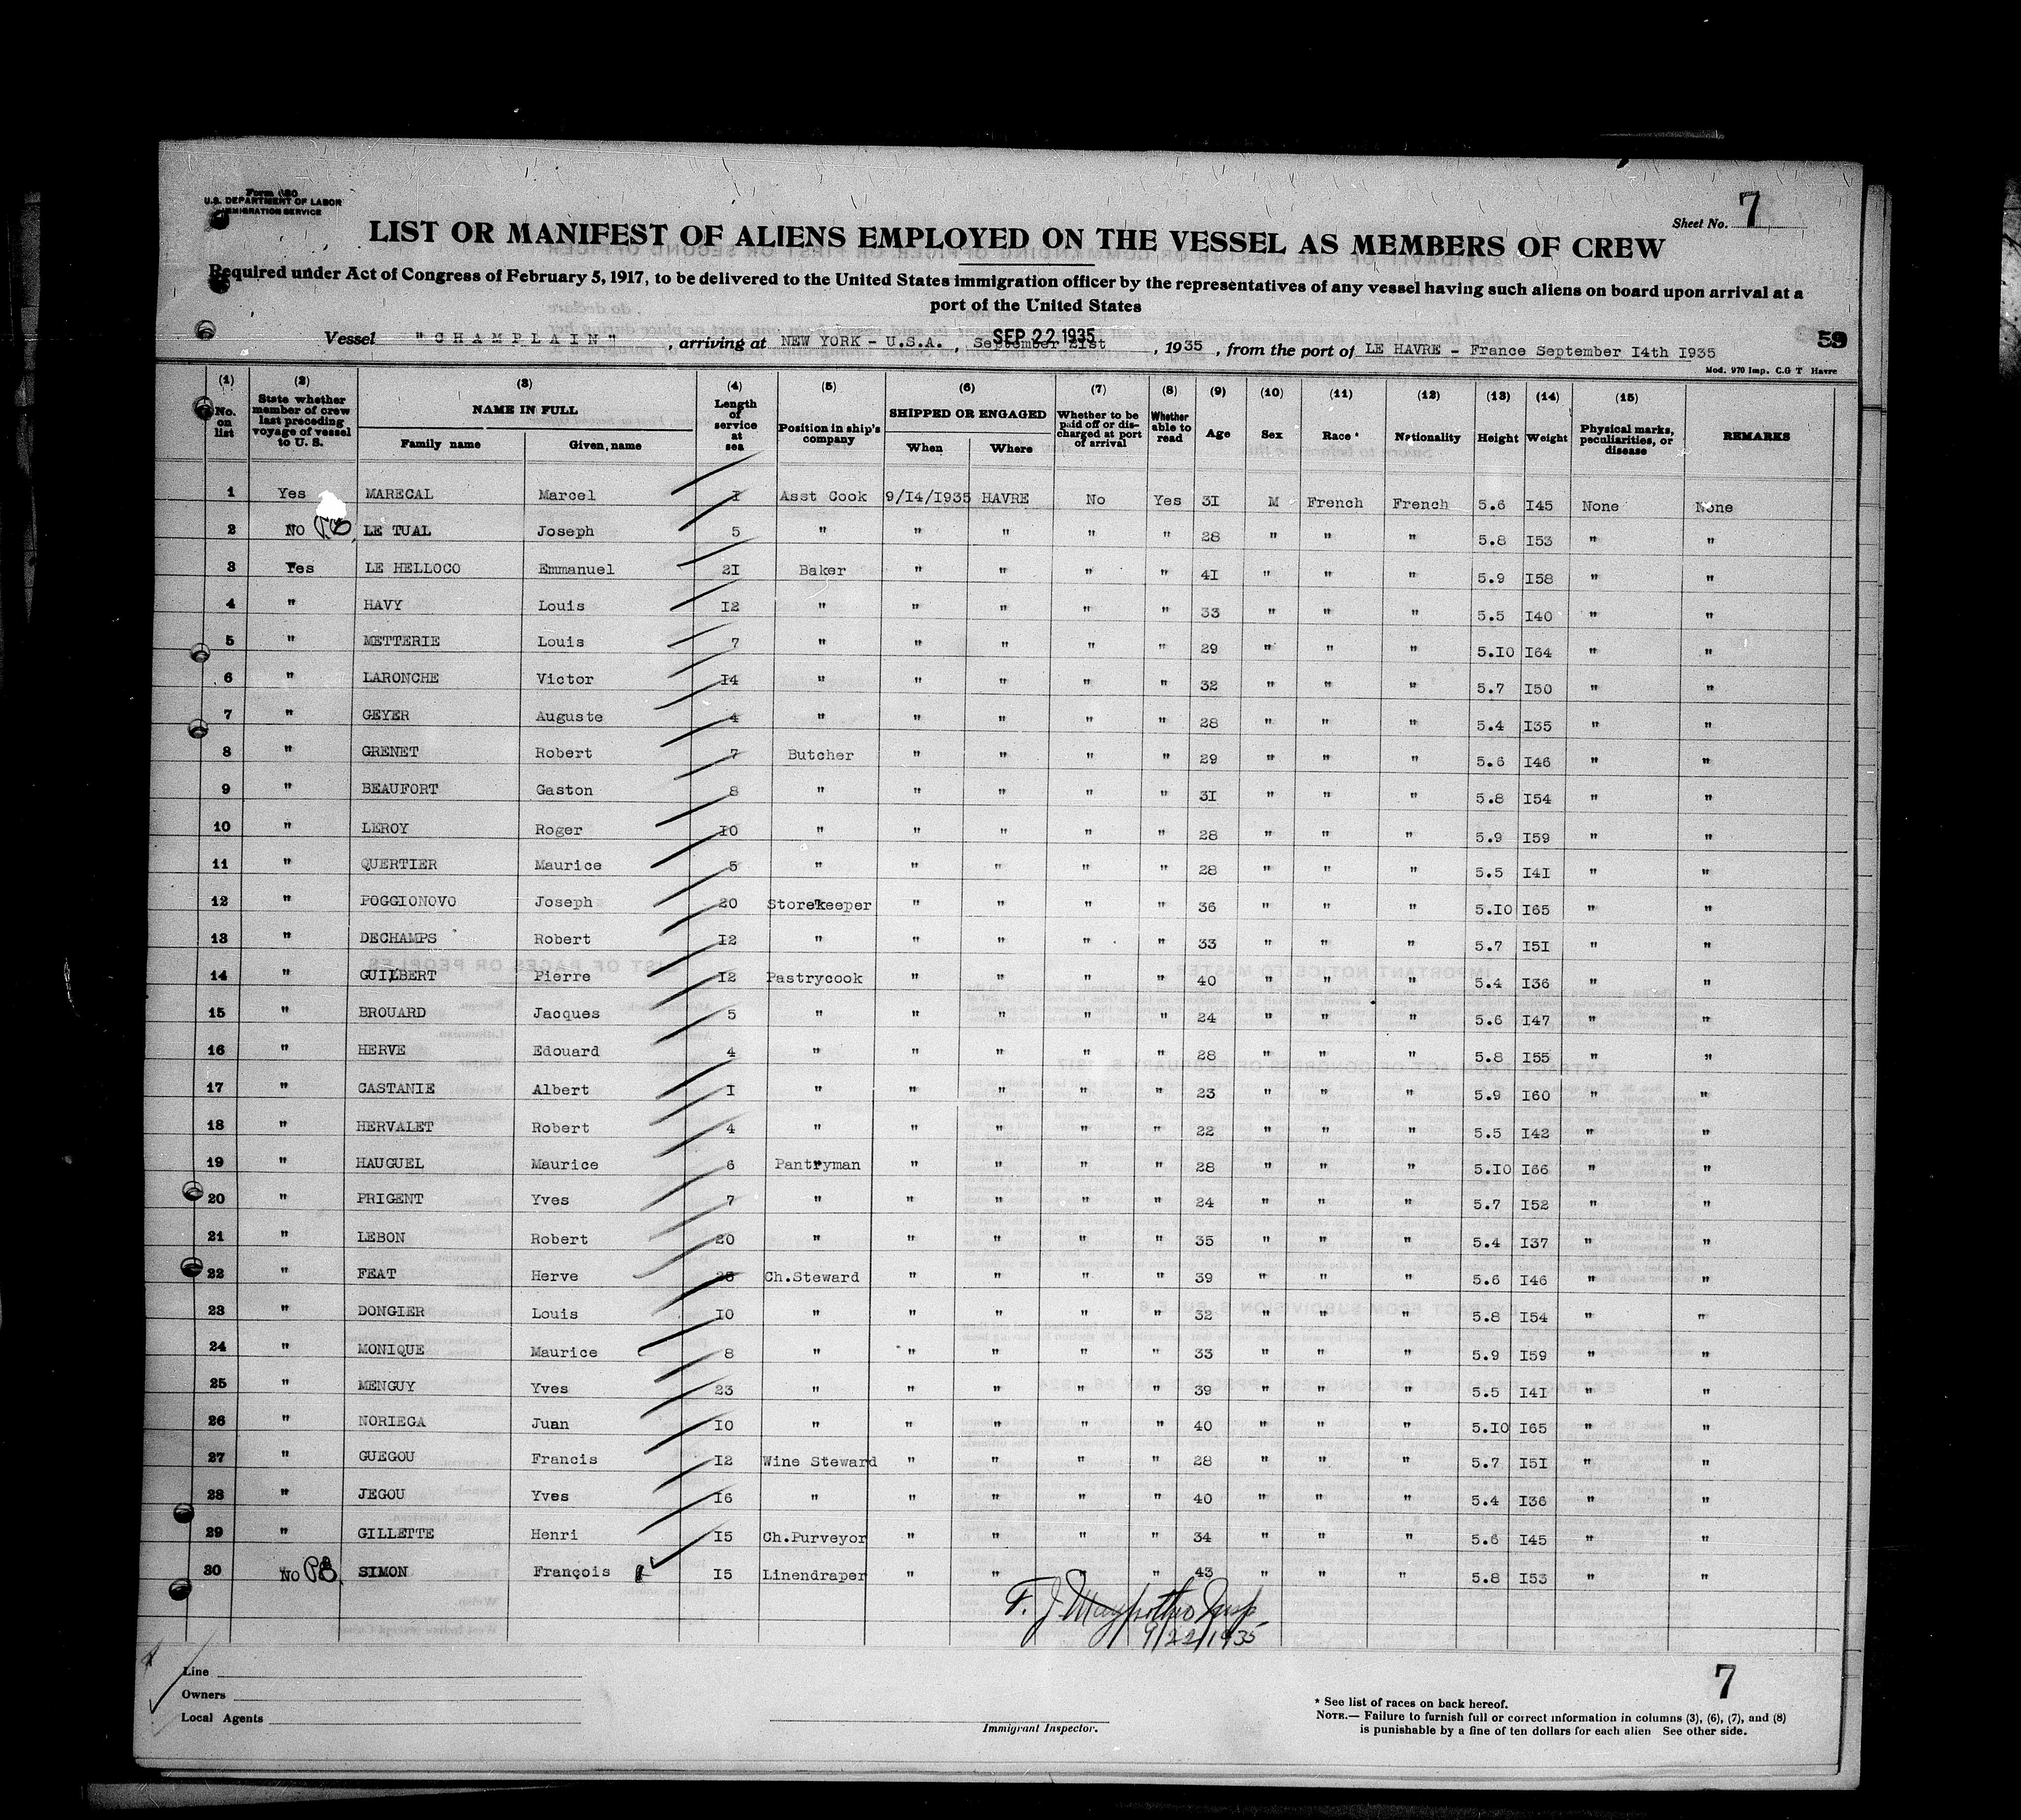 Form 680
U.S. DEPARTMENT OF LABOR
IMMIGRATION SERVICE
Sheet No. 7
LIST OR MANIFEST OF ALIENS EMPLOYED ON THE VESSEL AS MEMBERS OF CREW
Required under Act of Congress of February 5, 1917, to be delivered to the United States immigration officer by the representatives of any vessel having such aliens on board upon arrival at a
port of the United States
SEP 22 1935
Vessel "CHAMPLAIN", arriving at NEW YORK - U.S.A., September 21st, 1935, from the port of LE HAVRE - France September I4th I935
59
Mod. 970 Imp. C.G T Havre
(1) (2) (3) (4) (5) (6) (7) (8) (9) (10) (11) (12) (13) (14) (15)
No. on list | State whether member of crew last preceding voyage of vessel to U. S. | NAME IN FULL Family name Given name | Length of service at sea | Position in ship's company | SHIPPED OR ENGAGED When Where | Whether to be paid off or discharged at port of arrival | Whether able to read | Age | Sex | Race * | Nationality | Height | Weight | Physical marks, peculiarities, or disease | REMARKS
1 Yes MARECAL Marcel I Asst Cook 9/14/1935 HAVRE No Yes 3I M French French 5.6 I45 None None
2 NO PB LE TUAL Joseph 5 " " " " " 28 " " " 5.8 I53 " "
3 Yes LE HELLOCO Emmanuel 2I Baker " " " " 4I " " " 5.9 I58 " "
4 " HAVY Louis I2 " " " " " 33 " " " 5.5 I40 " "
5 " METTERIE Louis 7 " " " " " 29 " " " 5.I0 I64 " "
6 " LARONCHE Victor I4 " " " " " 32 " " " 5.7 I50 " "
7 " GEYER Auguste 4 " " " " " 28 " " " 5.4 I35 " "
8 " GRENET Robert 7 Butcher " " " " 29 " " " 5.6 I46 " "
9 " BEAUFORT Gaston 8 " " " " " 3I " " " 5.8 I54 " "
10 " LEROY Roger I0 " " " " " 28 " " " 5.9 I59 " "
11 " QUERTIER Maurice 5 " " " " " 28 " " " 5.5 I4I " "
12 " POGGIONOVO Joseph 20 Storekeeper " " " " 36 " " " 5.I0 I65 " "
13 " DECHAMPS Robert I2 " " " " " 33 " " " 5.7 I5I " "
14 " GUILBERT Pierre I2 Pastrycook " " " " 40 " " " 5.4 I36 " "
15 " BROUARD Jacques 5 " " " " " 24 " " " 5.6 I47 " "
16 " HERVE Edouard 4 " " " " " 28 " " " 5.8 I55 " "
17 " CASTANIE Albert I " " " " " 23 " " " 5.9 I60 " "
18 " HERVALET Robert 4 " " " " " 22 " " " 5.5 I42 " "
19 " HAUGUEL Maurice 6 Pantryman " " " " 28 " " " 5.I0 I66 " "
20 " PRIGENT Yves 7 " " " " " 24 " " " 5.7 I52 " "
21 " LEBON Robert 20 " " " " " 35 " " " 5.4 I37 " "
22 " FEAT Herve Ch.Steward " " " " 39 " " " 5.6 I46 " "
23 " DONGIER Louis I0 " " " " " 32 " " " 5.8 I54 " "
24 " MONIQUE Maurice 8 " " " " " 33 " " " 5.9 I59 " "
25 " MENGUY Yves 23 " " " " " 39 " " " 5.5 I4I " "
26 " NORIEGA Juan I0 " " " " " 40 " " " 5.I0 I65 " "
27 " GUEGOU Francis I2 Wine Steward " " " " 28 " " " 5.7 I5I " "
28 " JEGOU Yves I6 " " " " " 40 " " " 5.4 I36 " "
29 " GILLETTE Henri I5 Ch.Purveyor " " " " 34 " " " 5.6 I45 " "
30 NO PB SIMON François I5 Linendraper " " " " 43 " " " 5.8 I53 " "
F. J. Insp
9/22/1935
Line
Owners
Local Agents
Immigrant Inspector.
7
* See list of races on back hereof.
NOTE.— Failure to furnish full or correct information in columns (3), (6), (7), and (8)
is punishable by a fine of ten dollars for each alien See other side.